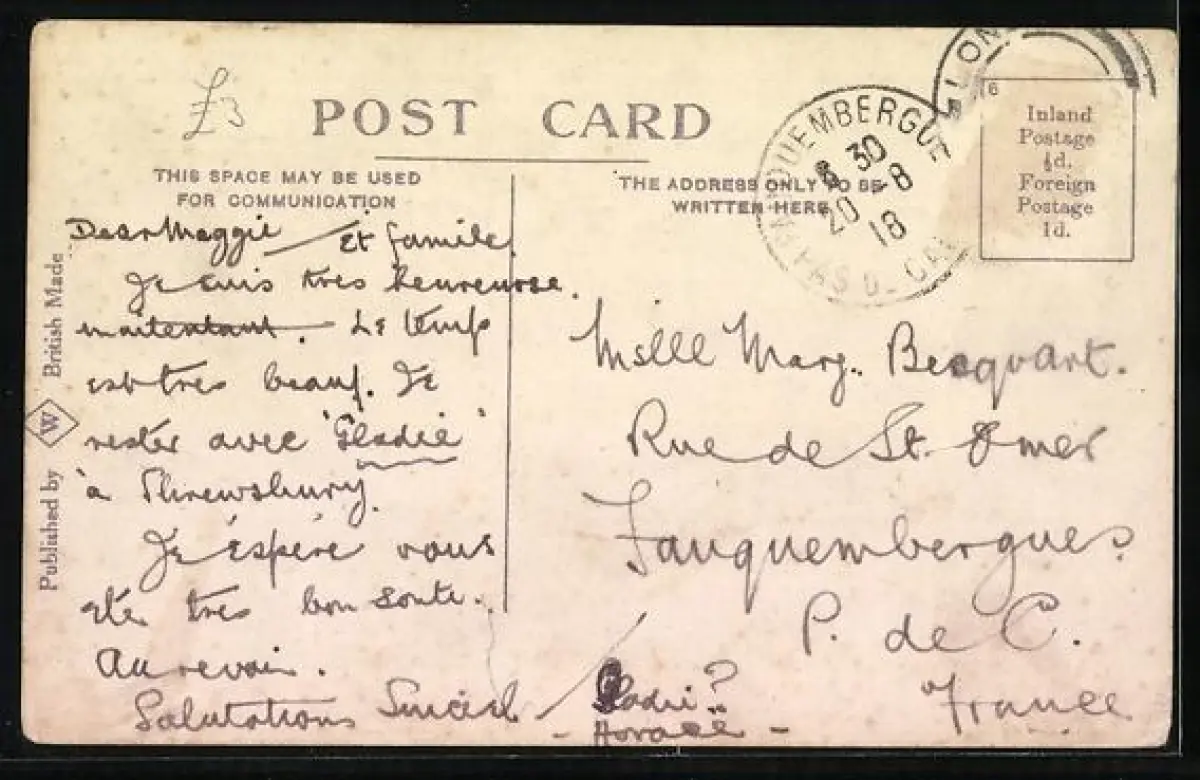 £3
POST CARD
THIS SPACE MAY BE USED
FOR COMMUNICATION
THE ADDRESS ONLY TO BE
WRITTEN HERE
Inland
Postage
½d.
Foreign
Postage
1d.
6
LON
FAUQUEMBERGUE
8 30
20 -8
18
PAS D. CA
British Made
W
Published by
Dear Maggie et famile
Je suis tres heureuse
maitentant. Le temps
est tres beauf. Je
rester avec "Gladie"
à Shrewsbury.
Je éspère vous
ete tres bon sonte.
Au revoir.
Salutations Sincèel
Gladie?
- Horace -
Mslle Marg. Becquart.
Rue de St. Omer
Fauquembergues
P. de C.
France